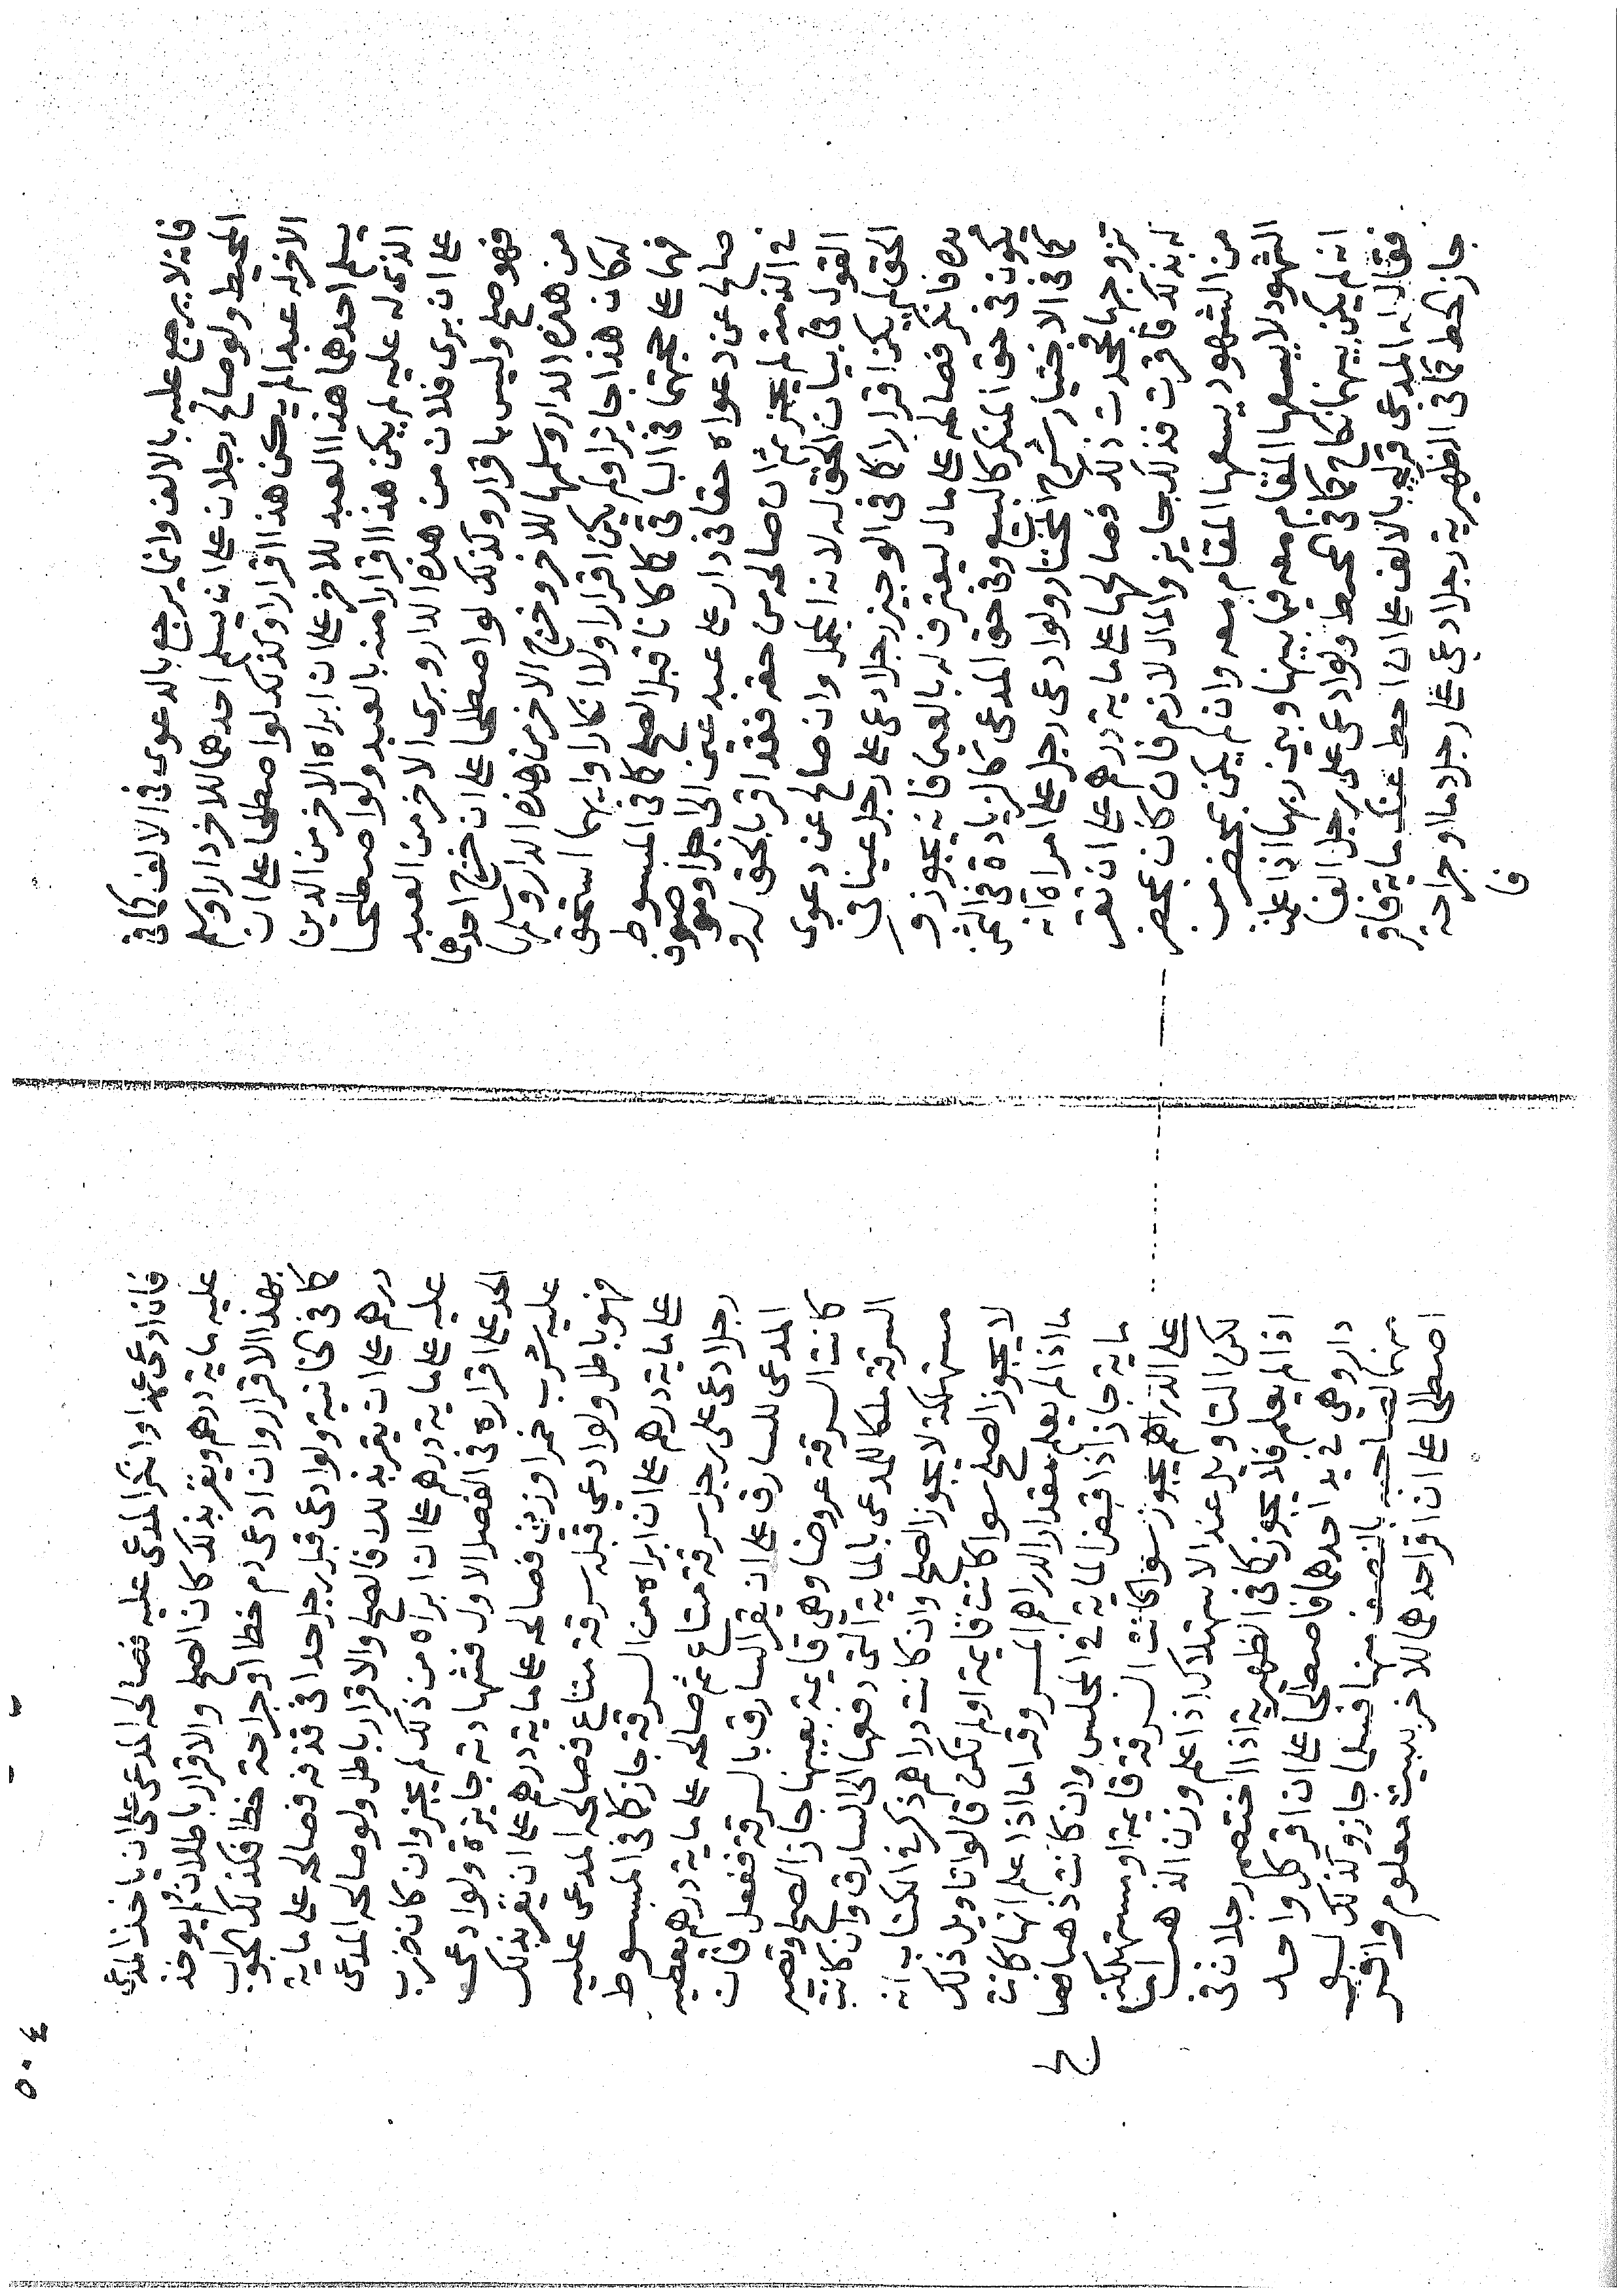 فانه لا يرجع عليه بالالف وانما يرجع بالدعوى في الالف كما في
المحيط ولو صالح رجلان على ان يسلم احدهما للاخر دارا ويسلم
الاخر له عبدا لم يكن هذا اقرارا وكذلك لو اصطلحا على ان
يسلم احدهما هذا العبد للاخر على ان ابراه الاخر من الدين
الذى له عليه لم يكن هذا اقرارا منه بالعبد ولو اصطلحا
على ان برى فلان من هذه الدار وبرى الاخر من العبد
فهو صلح وليس باقرار وكذلك لو اصطلحا على ان خرج احدهما
من هذه الدار وسلمها للاخر وخرج الاخر من هذه الدار وسلمها
له كان هذا جايزا ولم يكن اقرارا ولا انكارا وايهما استحق
فهما على حجتهما في الباقى كما كانا قبل الصلح كما في المبسوط
صالح عن دعواه حقا في دار على عبد عين الى اجل او موصوف
في الذمة لم يجز ثم ان صالحه من حقه فقد اقر بالحق له و
القول في بيان الحق له لانه المجمل وان صالح عن دعوى
الحق لم يكن اقرارا كما في الوجيز رجل ادعى على رجل عينا في
يده فانكر فصالحه على مال ليعترف له بالعين فانه يجوز و
يكون في حق المنكر كالبيع وفي حق المدعى كالزيادة في الثمن
كما في الاختيار شرح المختار ولو ادعى رجل على امراة انه
تزوجها فجحدت ذلك فصالحها على ماية درهم على ان تقر
له بذلك فاقرت فذلك جايز والمال لازم فان كان بمحضر
من الشهود يسعها المقام معه وان لم يكن بمحضر من
الشهود لا يسعها المقام معه فيما بينها وبين ربها اذا علمت
انه لم يكن بينهما نكاح كما في المحيط ولو ادعى على رجل الف
فقال له المدعى قر لي بالالف على ان احط عنك ماية فاقر
جاز الحط كما في الظهيرية رجل ادعى على رجل دما او جراحة
فا
٥٠٤
فان ادعى عمدا وانكر المدعى عليه فصالحه المدعى على ان ياخذ المدعى
عليه ماية درهم ويقر بذلك كان الصلح والاقرار باطلان ولم يوخذ
بهذا الاقرار وان ادعى دم خطا او جراحة خطا فكذلك الجواب
كما في الخانية ولو ادعى قبل رجل حدا في قذفه فصالحه على ماية
درهم على ان يقر بذلك فالصلح والاقرار باطل ولو صالحه المدعى
عليه على ماية درهم على ان ابراه من ذلك لم يجز وان كان ضرب
الحد على اقراره في الفصل الاول فشهادته جايزة ولو ادعى
عليه شرب خمر او زنى فصالحه على ماية درهم على ان يقر بذلك
فهو باطل ولو ادعى قبله سرقة متاع فصالحه المدعى عليه
على ماية درهم على ان ابراه من السرقة جاز كما في المبسوط
رجل ادعى على رجل سرقة متاع ثم صالحه على ماية درهم يعطيه
المدعى للسارق على ان يقر السارق بالسرقة ففعل فان
كانت السرقة عروضا وهي قايمة بعينها جاز الصلح وتصير
السرقة ملكا للمدعى بالماية التى دفعها الى السارق وان كانت
مستهلكة لا يجوز الصلح وان كانت دراهم ذكر في الكتاب انه
لا يجوز الصلح سوا كانت قايمة او لم تكن قالوا تاويل ذلك
ما اذا لم يعلم مقدار الدراهم المسروقة اما اذا علم انها كانت
ماية جاز اذا قبض الماية في المجلس وان كانت ذهبا فصالحها
على الدراهم يجوز سوا كانت السرقة قايمة او مستهلكة
لكن التاويل عند الاستهلاك اذا علم وزن الذهب اما
اذا لم يعلم فلا يجوز كما في الظهيرية اذا اختصم رجلان في
دار وهي في يد احدهما فاصطلحا على ان اقر كل واحد
منهما لصاحبه بالنصف منها فسلما جاز وكذلك لو
اصطلحا على ان اقر احدهما للاخر ببيت معلوم واقر